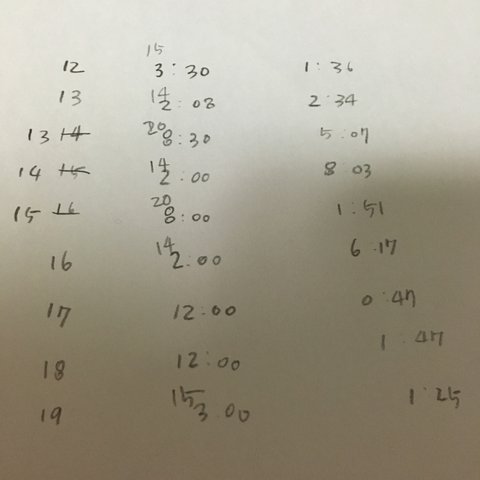 12 15 3:30 1:36
13 14 2:08 2:34
13 14 20 8:30 5:07
14 15 14 2:00 8:03
15 16 20 8:00 1:51
16 14 2:00 6:17
17 12:00 0:47
18 12:00 1:47
19 15 3:00 1:25